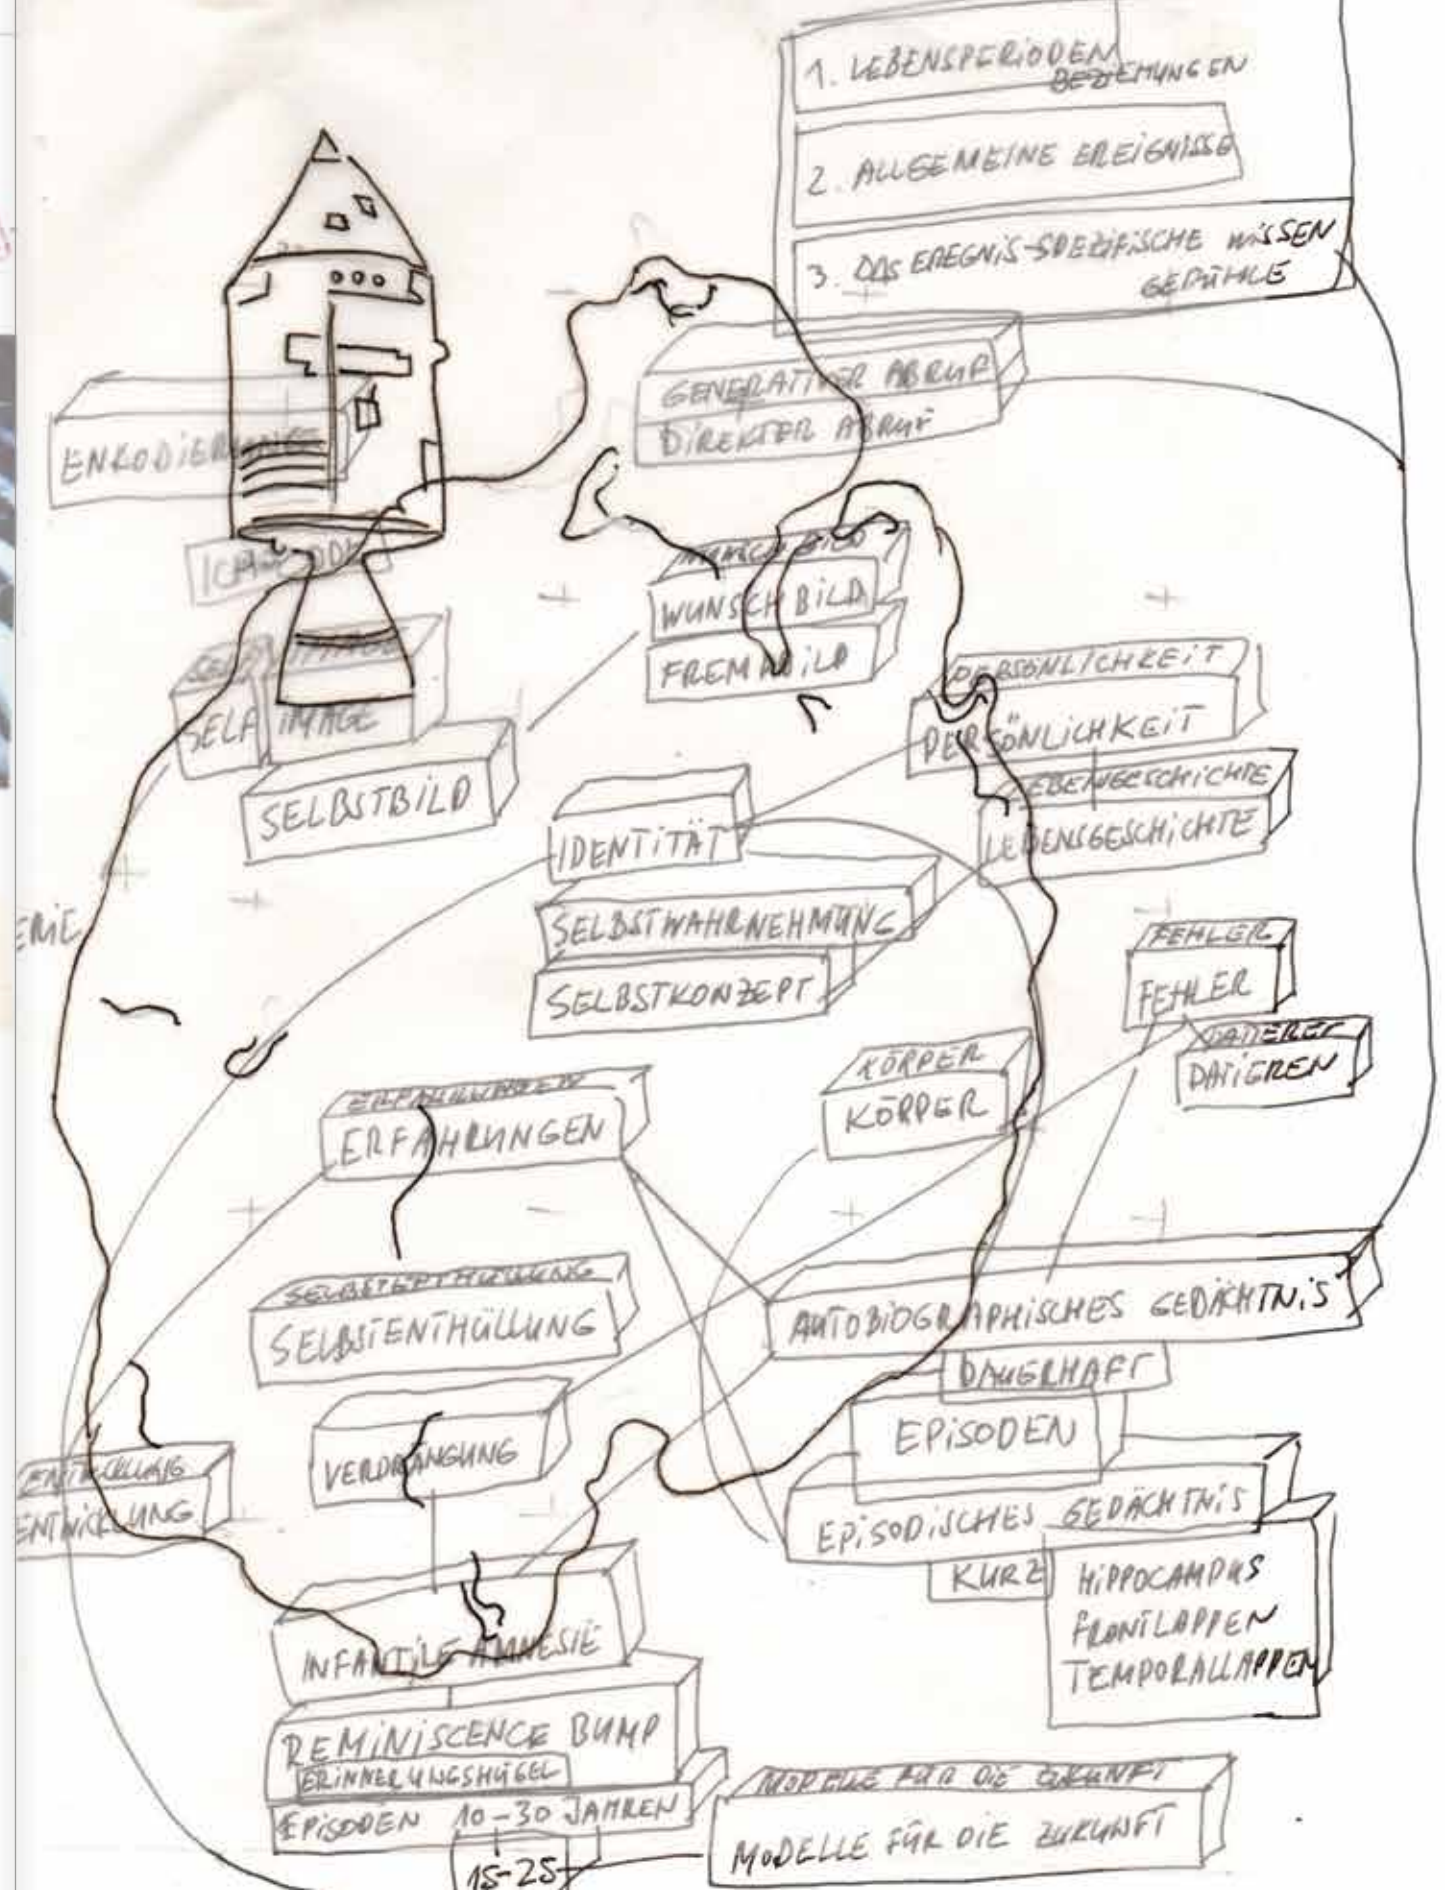 1. LEBENSPERIODEN
BEZIEHUNGEN
2. ALLGEMEINE EREIGNISSE
3. DAS EREGNIS-SPEZIFISCHE WISSEN
GEFÜHLE
GENERATIVER ABRUF
DIREKTER ABRUF
WUNSCHBILD
FREMDBILD
SELF IMAGE
SELBSTBILD
PERSÖNLICHKEIT
PERSÖNLICHKEIT
LEBENSGESCHICHTE
IDENTITÄT
SELBSTWAHRNEHMUNG
SELBSTKONZEPT
FEHLER
FEHLER
DATIEREN
KÖRPER
KÖRPER
ERFAHRUNGEN
SELBSTENTHÜLLUNG
AUTOBIOGRAPHISCHES GEDÄCHTNIS
DAUERHAFT
EPISODEN
VERDRÄNGUNG
ENTWICKLUNG
EPISODISCHES GEDÄCHTNIS
KURZ
HIPPOCAMPUS
FRONTLAPPEN
TEMPORALLAPPEN
INFANTILE AMNESIE
REMINISCENCE BUMP
ERINNERUNGSHÜGEL
EPISODEN 10-30 JAHREN
15-25
MODELLE FÜR DIE ZUKUNFT
MODELLE FÜR DIE ZUKUNFT